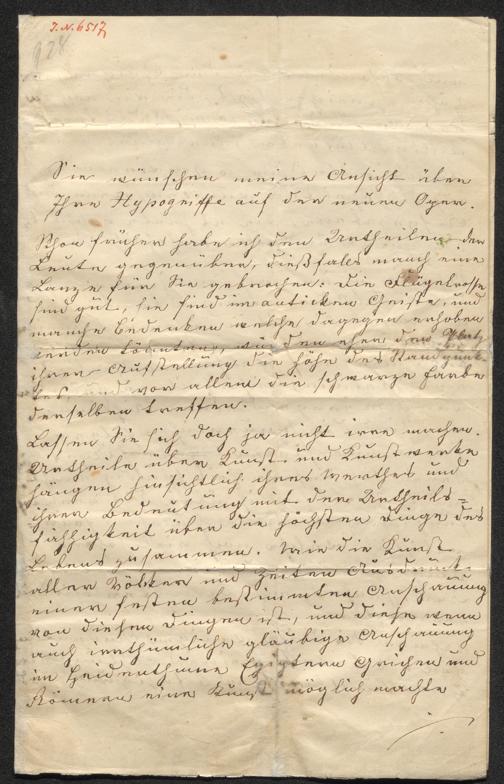 J.N. 6517
928
Sie wünschen meine Ansicht über
Ihre Hypogriffe auf der neuen Oper.
Schon früher habe ich den Urtheilen der
Leute gegenüber, dießfalls manch eine
Lanze für Sie gebrochen: die Flügelrosse
sind gut, sie sind im anticken Geiste, und
manche Bedenken welche dagegen erhoben
werden könnten, würden eher den Platz
ihrer Aufstellung die Höhe des Standpunk-
tes und vor allem die schwarze Farbe
derselben treffen.
Lassen Sie sich doch ja nicht irre machen.
Urtheile über Kunst und Kunstwerke
hängen hinsichtlich ihres Werthes und
ihrer Bedeutung mit der Urtheils-
fähigkeit über die höchsten Dinge des
Lebens zusammen. Wie die Kunst
aller Völker und Zeiten Ausdruck
einer festen bestimmten Anschauung
von diesen Dingen ist, und diese wenn
auch irrthümliche gläubige Anschauung
im Heidenthume Egiptern Grichen und
Römern eine Kunst möglich machte